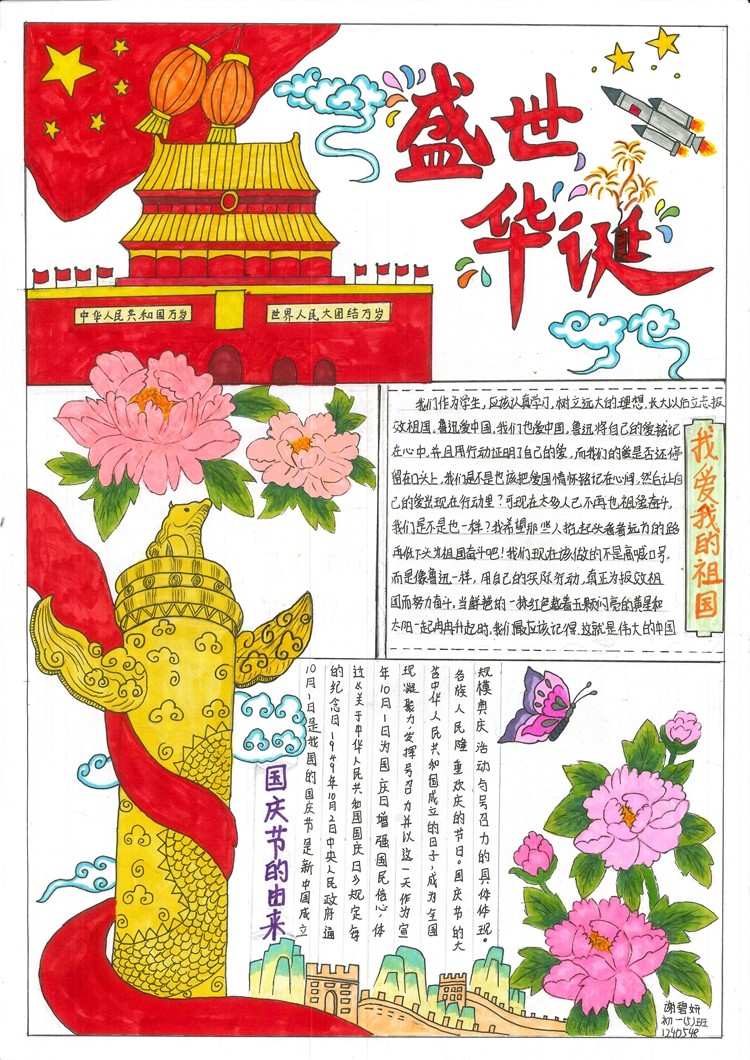 盛世
华诞
中华人民共和国万岁
世界人民大团结万岁
我爱我的祖国
我们作为学生,应该认真学习,树立远大的理想,长大以后立志报
效祖国,鲁迅爱中国,我们也爱中国,鲁迅将自己的爱铭记
在心中,并且用行动证明了自己的爱,而我们的爱是否还停
留在口头上,我们是不是也该把爱国情怀铭记在心间,然后让自
己的爱出现在行动里?可现在太多人已不再也祖国奋斗,
我们是不是也一样?我希望那些人抬起头看着远方的路
再低下头为祖国奋斗吧!我们现在该做的不是高喊口号,
而是像鲁迅一样,用自己的实际行动,真正为报效祖
国而努力奋斗,当鲜艳的一抹红色载着五颗闪亮的黄星和
太阳一起冉冉升起时,我们最应该记得,这就是伟大的中国
国庆节的由来
10月1日是我国的国庆节是新中国成立
的纪念日1949年10月2日中央人民政府通
过《关于中华人民共和国国庆日》规定每
年10月1日为国庆日增强国民信心,体
现凝聚力,发挥号召力并以这一天作为宣
告中华人民共和国成立的日子,成为全国
各族人民隆重欢庆的节日。国庆节的大
规模典庆活动与号召力的具体体现。
谢碧妍
初一(5)班
1240548